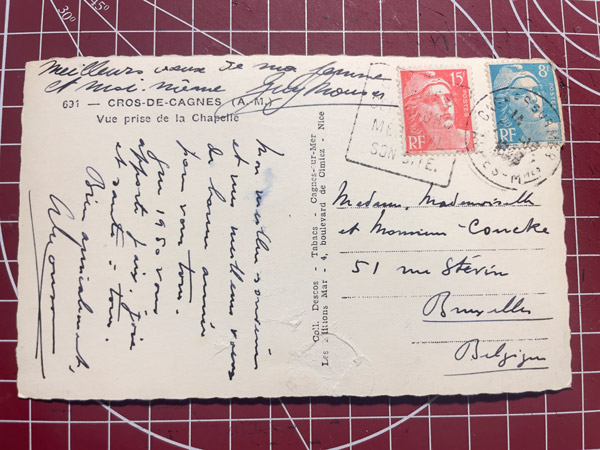 Meilleurs vœux de ma femme
et moi-même Guy Mousson
691 — CROS-DE-CAGNES (A.-M.)
Vue prise de la Chapelle
Mon meilleur souvenir
et mes meilleurs vœux
de bonne année
pour vous tous.
que 1950 vous
apporte joie, joie
et santé à tous.
Bien amicalement,
Coll. Descos - Tabacs - Cagnes-sur-Mer
Les Editions Mar - 4, boulevard de Cimiez - Nice
15F
RF
SON SITE.
8F
RF
Madame, Mademoiselle
et Monsieur Concke
51 rue Stévin
Bruxelles
Belgique